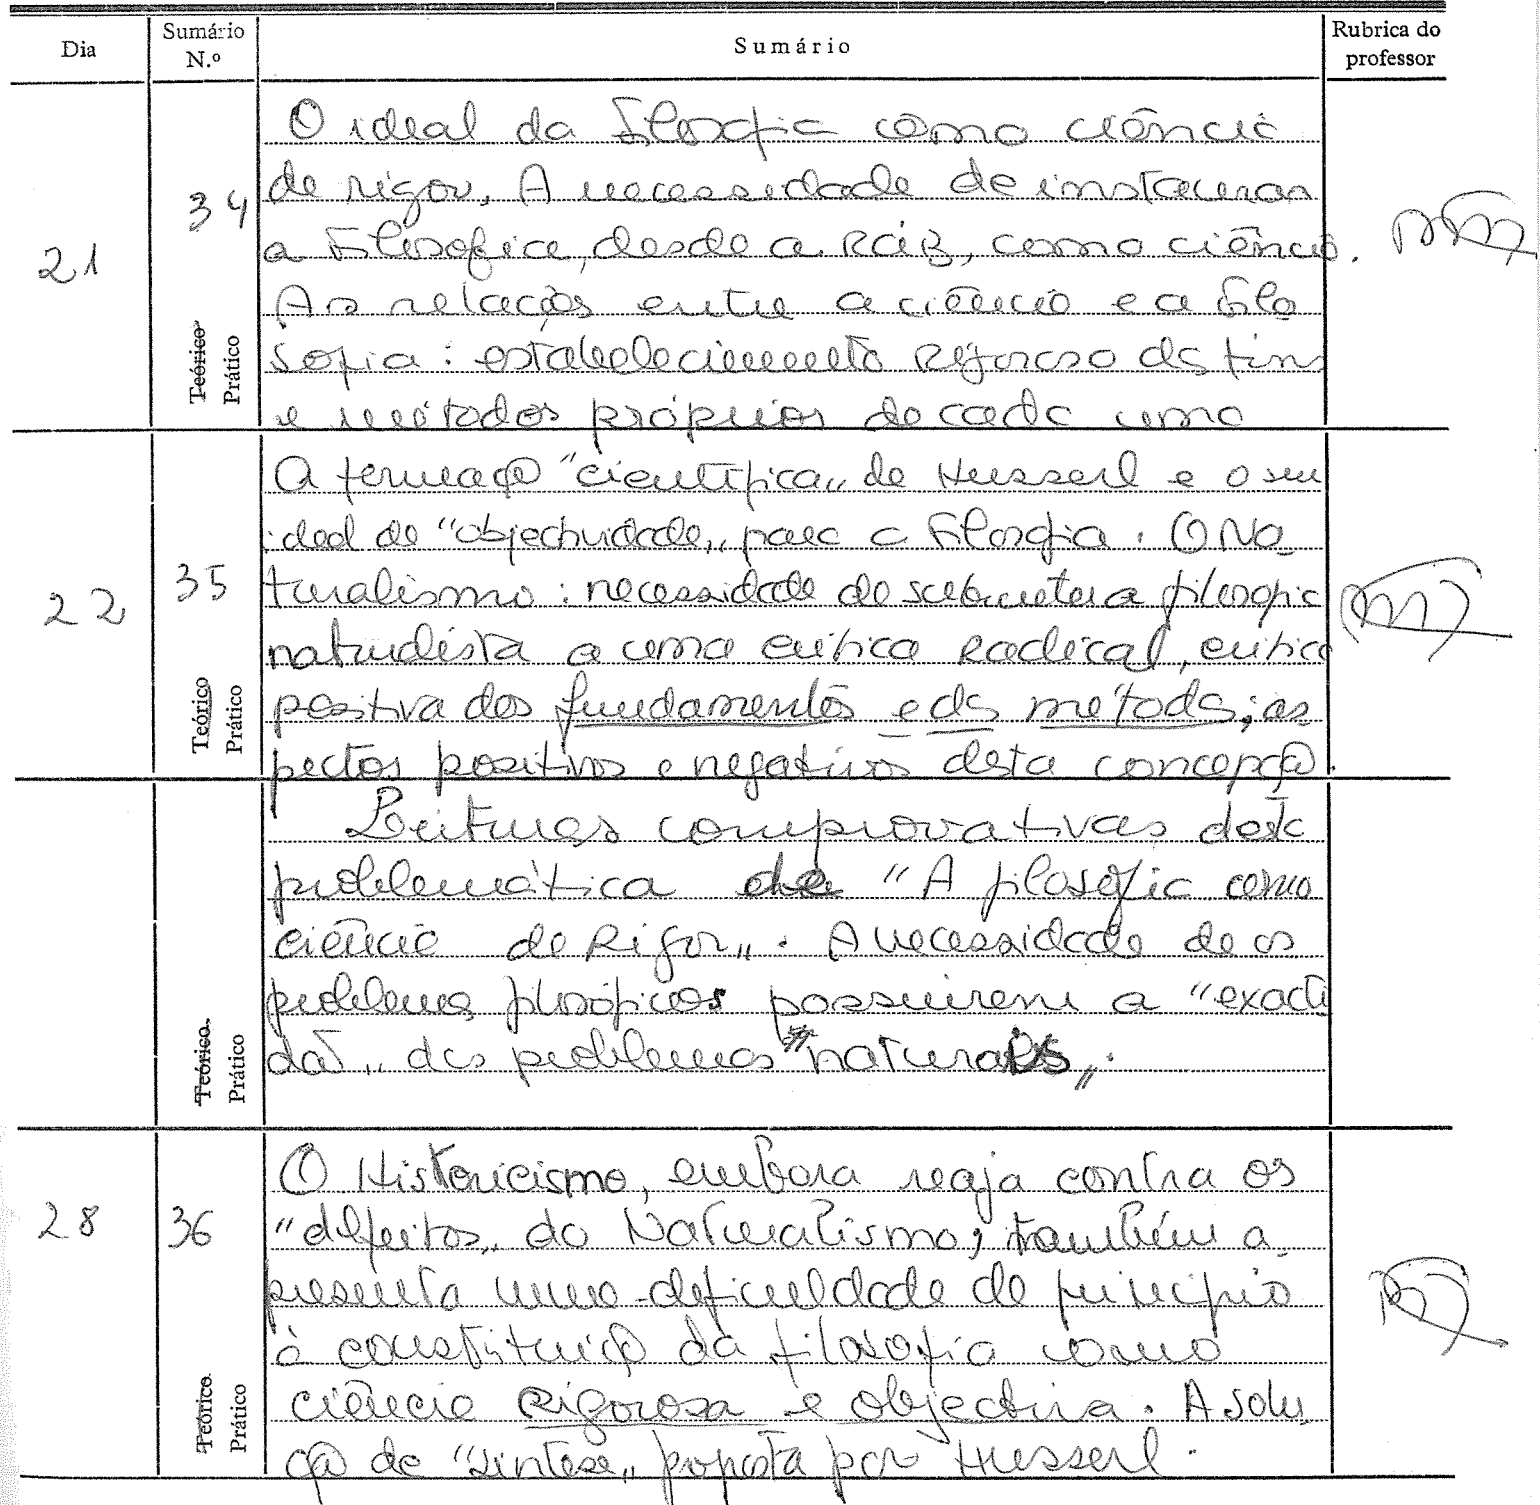 Dia
Sumário
N.º
Sumário
Rubrica do
professor
21
34
Teórico
Prático
O ideal da Filosofia como ciência
de rigor. A necessidade de instaurar
a Filosofia, desde a Raiz, como ciência.
As relações entre a ciência e a Filo
sofia: estabelecimento Rigoroso dos fins
e métodos próprios de cada uma
22
35
Teórico
Prático
A formação "científica" de Husserl e o seu
ideal de "objectividade" para a Filosofia. O Na
turalismo: necessidade de submeter a filosofia
naturalista a uma crítica Radical, crítica
positiva dos fundamentos e dos métodos; as
pectos positivos e negativos desta concepção.
Teórico
Prático
Leituras comprovativas desta
problemática da "A filosofia como
ciência de Rigor". A necessidade de os
problemas filosóficos possuirem a "exacti
dão" dos problemas "naturais".
28
36
Teórico
Prático
O Historicismo, embora reaja contra os
"defeitos" do Naturalismo, também a
presenta uma dificuldade de princípio
à constituição da filosofia como
ciência Rigorosa e objectiva. A solu
ção de "síntese" proposta por Husserl.